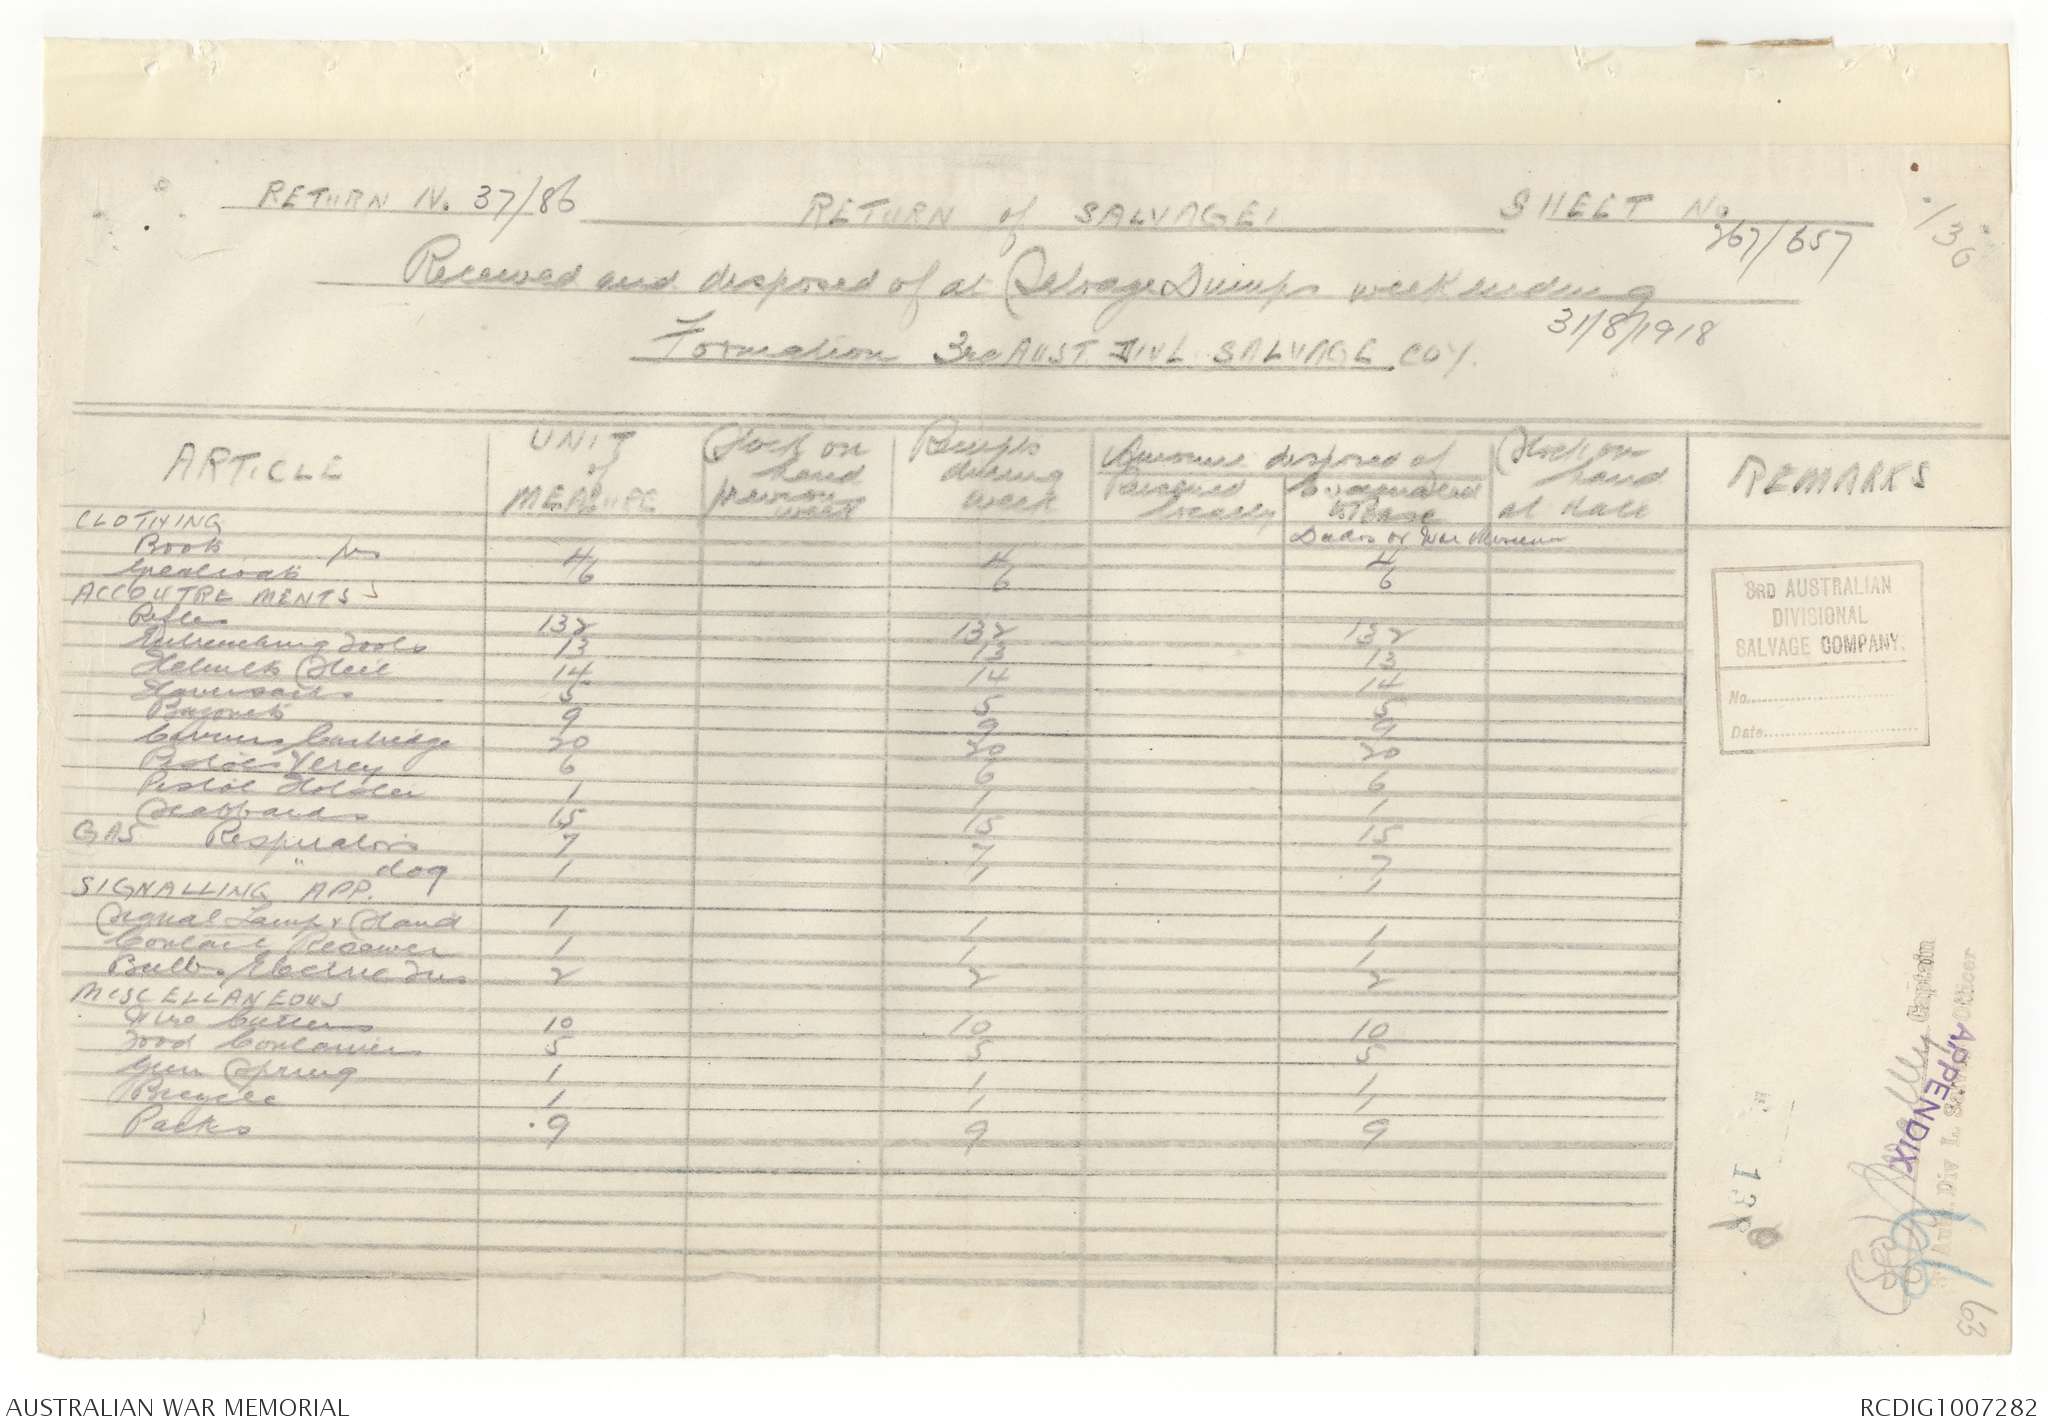 RETURN N. 37/86 RETURN of SALVAGE SHEET No
267/657
136
Received and disposed of at Salvage Dumps week ending
31/8/1918
Formation 3rd AUST DIVL. SALVAGE COY.
ARTICLE UNIT of MEASURE Stock on hand previous week Receipts during week Amount disposed of Reissued locally Evacuated to Base Stock on hand at date REMARKS
CLOTHING Dados or War Museum
Boots prs 4 4 4
Greatcoats 6 6 6
ACCOUTREMENTS
Rifles 132 132 132
Entrenching Tools 13 13 13
Helmets Steel 14 14 14
Haversacks 5 5 5
Bayonets 9 9 9
Carriers Cartridge 20 20 20
Pistols Verey 6 6 6
Pistol Holster 1 1 1
Scabbards 15 15 15
GAS Respirators 7 7 7
" dog 1 1 1
SIGNALLING APP.
Signal Lamp & Stand 1 1 1
Contact Receiver 1 1 1
Bulbs Electric 2 2 2
MISCELLANEOUS
Wire Cutters 10 10 10
Food Containers 5 5 5
Gun Spring 1 1 1
Bicycle 1 1 1
Packs 9 9 9
3RD AUSTRALIAN
DIVISIONAL
SALVAGE COMPANY.
No.
Date
Captain
Div L. Officer
APPENDIX
63
AUSTRALIAN WAR MEMORIAL RCDIG1007282